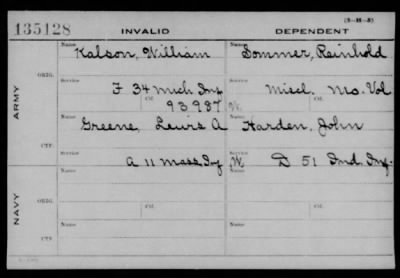 135128
(3-H-5)
INVALID DEPENDENT
ARMY
ORIG.
Name Name
Kalson, William Sommer, Reinhold
Service Service
F 34 Mich Inf Miscl. Mo. Vol
Ctf. Ctf.
93987 W.
CTF.
Name Name
Greene, Lewis A Harden, John
Service Service
A 11 Mass Inf W. D 51 Ind. Inf.
NAVY
ORIG.
Name Name
Ctf. Ctf.
CTF.
Name Name